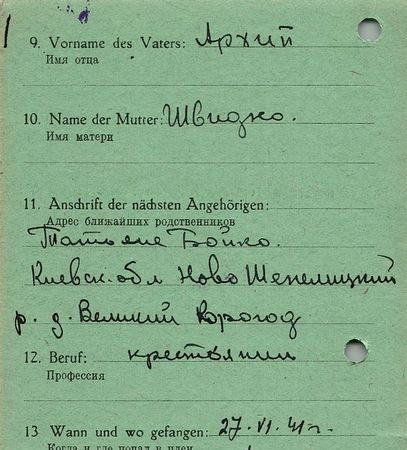 9. Vorname des Vaters: Архип
Имя отца
10. Name der Mutter: Швидко.
Имя матери
11. Anschrift der nächsten Angehörigen:
Адрес ближайших родственников
Татьяне Бойко.
Киевск. обл Ново Шепелицкий
р. д. Великий Корогод
12. Beruf: крестьянин
Профессия
13 Wann und wo gefangen: 27. VI. 41 г.
Когда и где попал в плен